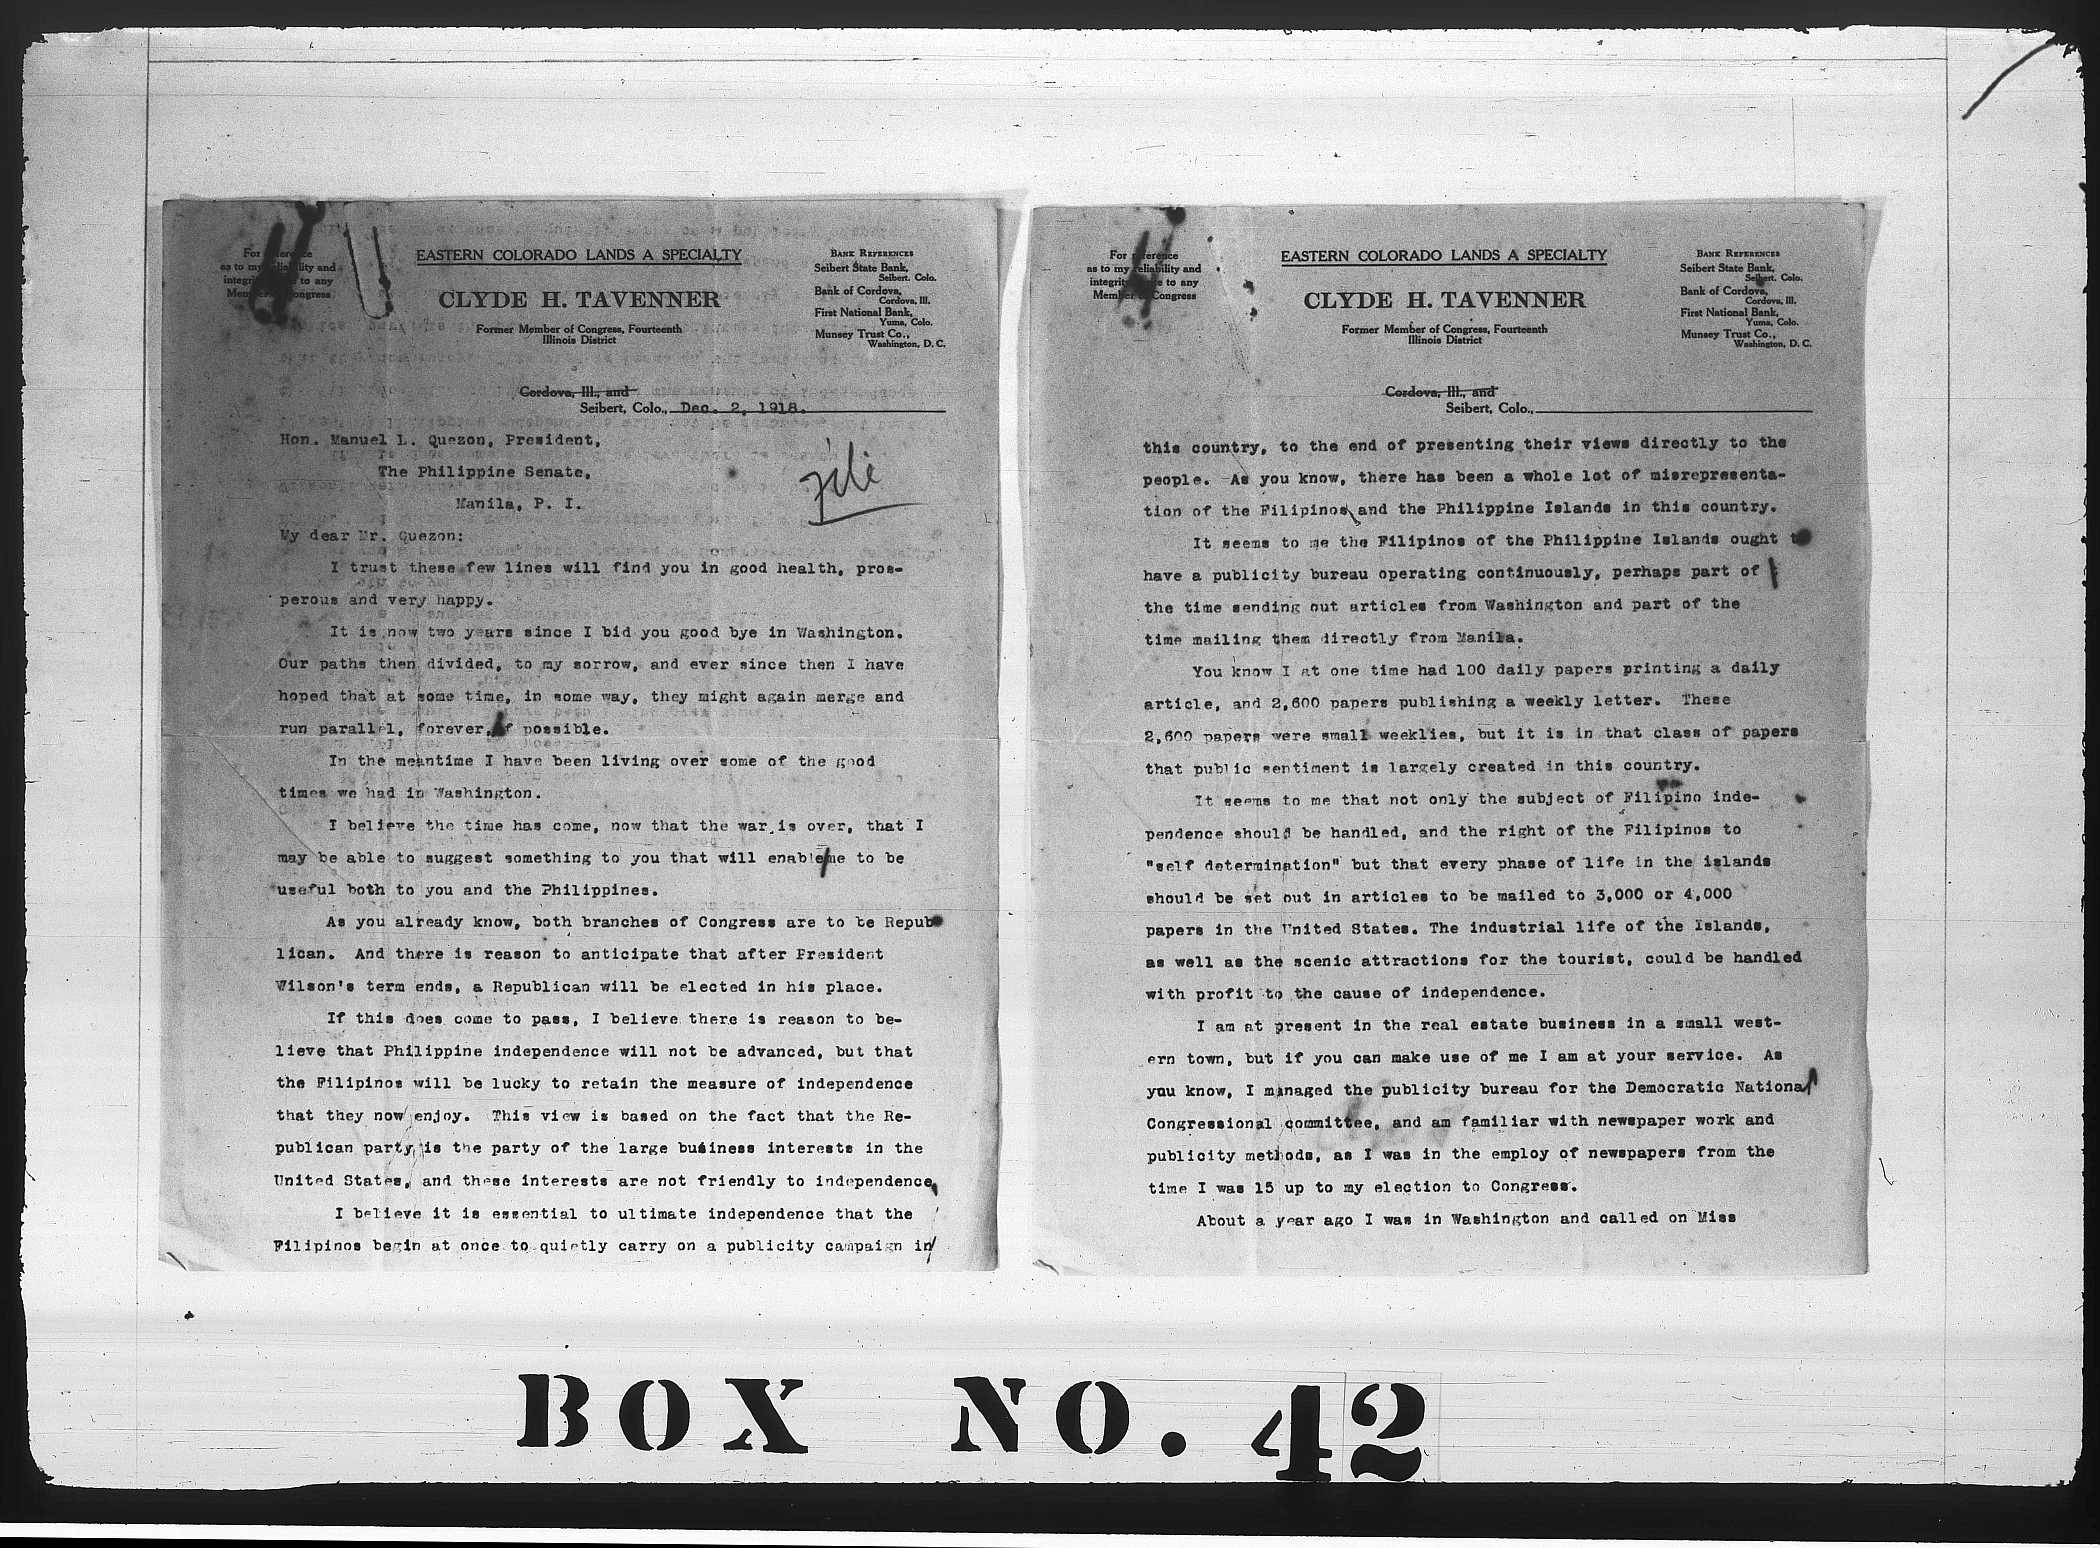 For reference
as to my reliability and
integrity write to any
Member of Congress
EASTERN COLORADO LANDS A SPECIALTY
CLYDE H. TAVENNER
Former Member of Congress, Fourteenth
Illinois District
BANK REFERENCES
Seibert State Bank,
Seibert, Colo.
Bank of Cordova,
Cordova, Ill.
First National Bank,
Yuma, Colo.
Munsey Trust Co.,
Washington, D. C.
Cordova, Ill., and
Seibert, Colo., Dec. 2, 1918.
Hon. Manuel L. Quezon, President,
The Philippine Senate,
Manila, P. I.
file
My dear Mr. Quezon:
I trust these few lines will find you in good health, pros-
perous and very happy.
It is now two years since I bid you good bye in Washington.
Our paths then divided, to my sorrow, and ever since then I have
hoped that at some time, in some way, they might again merge and
run parallel, forever, if possible.
In the meantime I have been living over some of the good
times we had in Washington.
I believe the time has come, now that the war is over, that I
may be able to suggest something to you that will enable/me to be
useful both to you and the Philippines.
As you already know, both branches of Congress are to be Repub-
lican. And there is reason to anticipate that after President
Wilson's term ends, a Republican will be elected in his place.
If this does come to pass, I believe there is reason to be-
lieve that Philippine independence will not be advanced, but that
the Filipinos will be lucky to retain the measure of independence
that they now enjoy. This view is based on the fact that the Re-
publican party is the party of the large business interests in the
United States, and these interests are not friendly to independence.
I believe it is essential to ultimate independence that the
Filipinos begin at once to quietly carry on a publicity campaign in
For reference
as to my reliability and
integrity write to any
Member of Congress
EASTERN COLORADO LANDS A SPECIALTY
CLYDE H. TAVENNER
Former Member of Congress, Fourteenth
Illinois District
BANK REFERENCES
Seibert State Bank,
Seibert, Colo.
Bank of Cordova,
Cordova, Ill.
First National Bank,
Yuma, Colo.
Munsey Trust Co.,
Washington, D. C.
Cordova, Ill., and
Seibert, Colo.,
this country, to the end of presenting their views directly to the
people. As you know, there has been a whole lot of misrepresenta-
tion of the Filipinos and the Philippine Islands in this country.
It seems to me the Filipinos of the Philippine Islands ought to
have a publicity bureau operating continuously, perhaps part of
the time sending out articles from Washington and part of the
time mailing them directly from Manila.
You know I at one time had 100 daily papers printing a daily
article, and 2,600 papers publishing a weekly letter. These
2,600 papers were small weeklies, but it is in that class of papers
that public sentiment is largely created in this country.
It seems to me that not only the subject of Filipino inde-
pendence should be handled, and the right of the Filipinos to
"self determination" but that every phase of life in the islands
should be set out in articles to be mailed to 3,000 or 4,000
papers in the United States. The industrial life of the Islands,
as well as the scenic attractions for the tourist, could be handled
with profit to the cause of independence.
I am at present in the real estate business in a small west-
ern town, but if you can make use of me I am at your service. As
you know, I managed the publicity bureau for the Democratic National
Congressional committee, and am familiar with newspaper work and
publicity methods, as I was in the employ of newspapers from the
time I was 15 up to my election to Congress.
About a year ago I was in Washington and called on Miss
BOX NO. 42